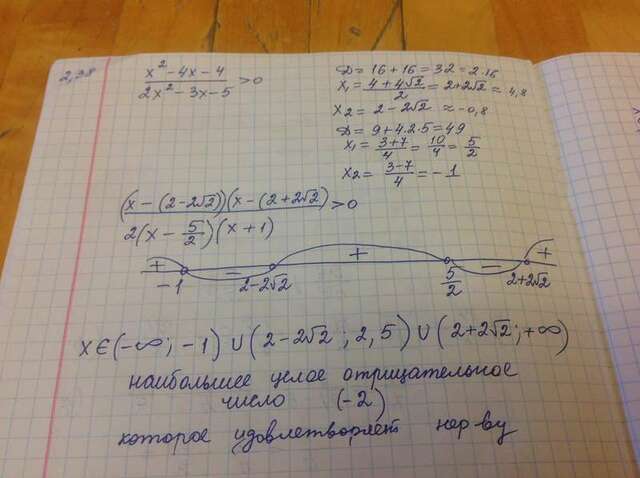 2,38
x² - 4x - 4 / 2x² - 3x - 5 > 0
D = 16 + 16 = 32 = 2·16
x₁ = 4 + 4√2 / 2 = 2 + 2√2 ≈ 4,8
x₂ = 2 - 2√2 ≈ -0,8
D = 9 + 4·2·5 = 49
x₁ = 3+7 / 4 = 10 / 4 = 5 / 2
x₂ = 3-7 / 4 = -1
(x - (2-2√2))(x - (2+2√2)) / 2(x - 5/2)(x + 1) > 0
+ - + - +
-1 2-2√2 5/2 2+2√2
x ∈ (-∞; -1) ∪ (2-2√2; 2,5) ∪ (2+2√2; +∞)
наибольшее целое отрицательное
число (-2)
которое удовлетворяет нер-ву